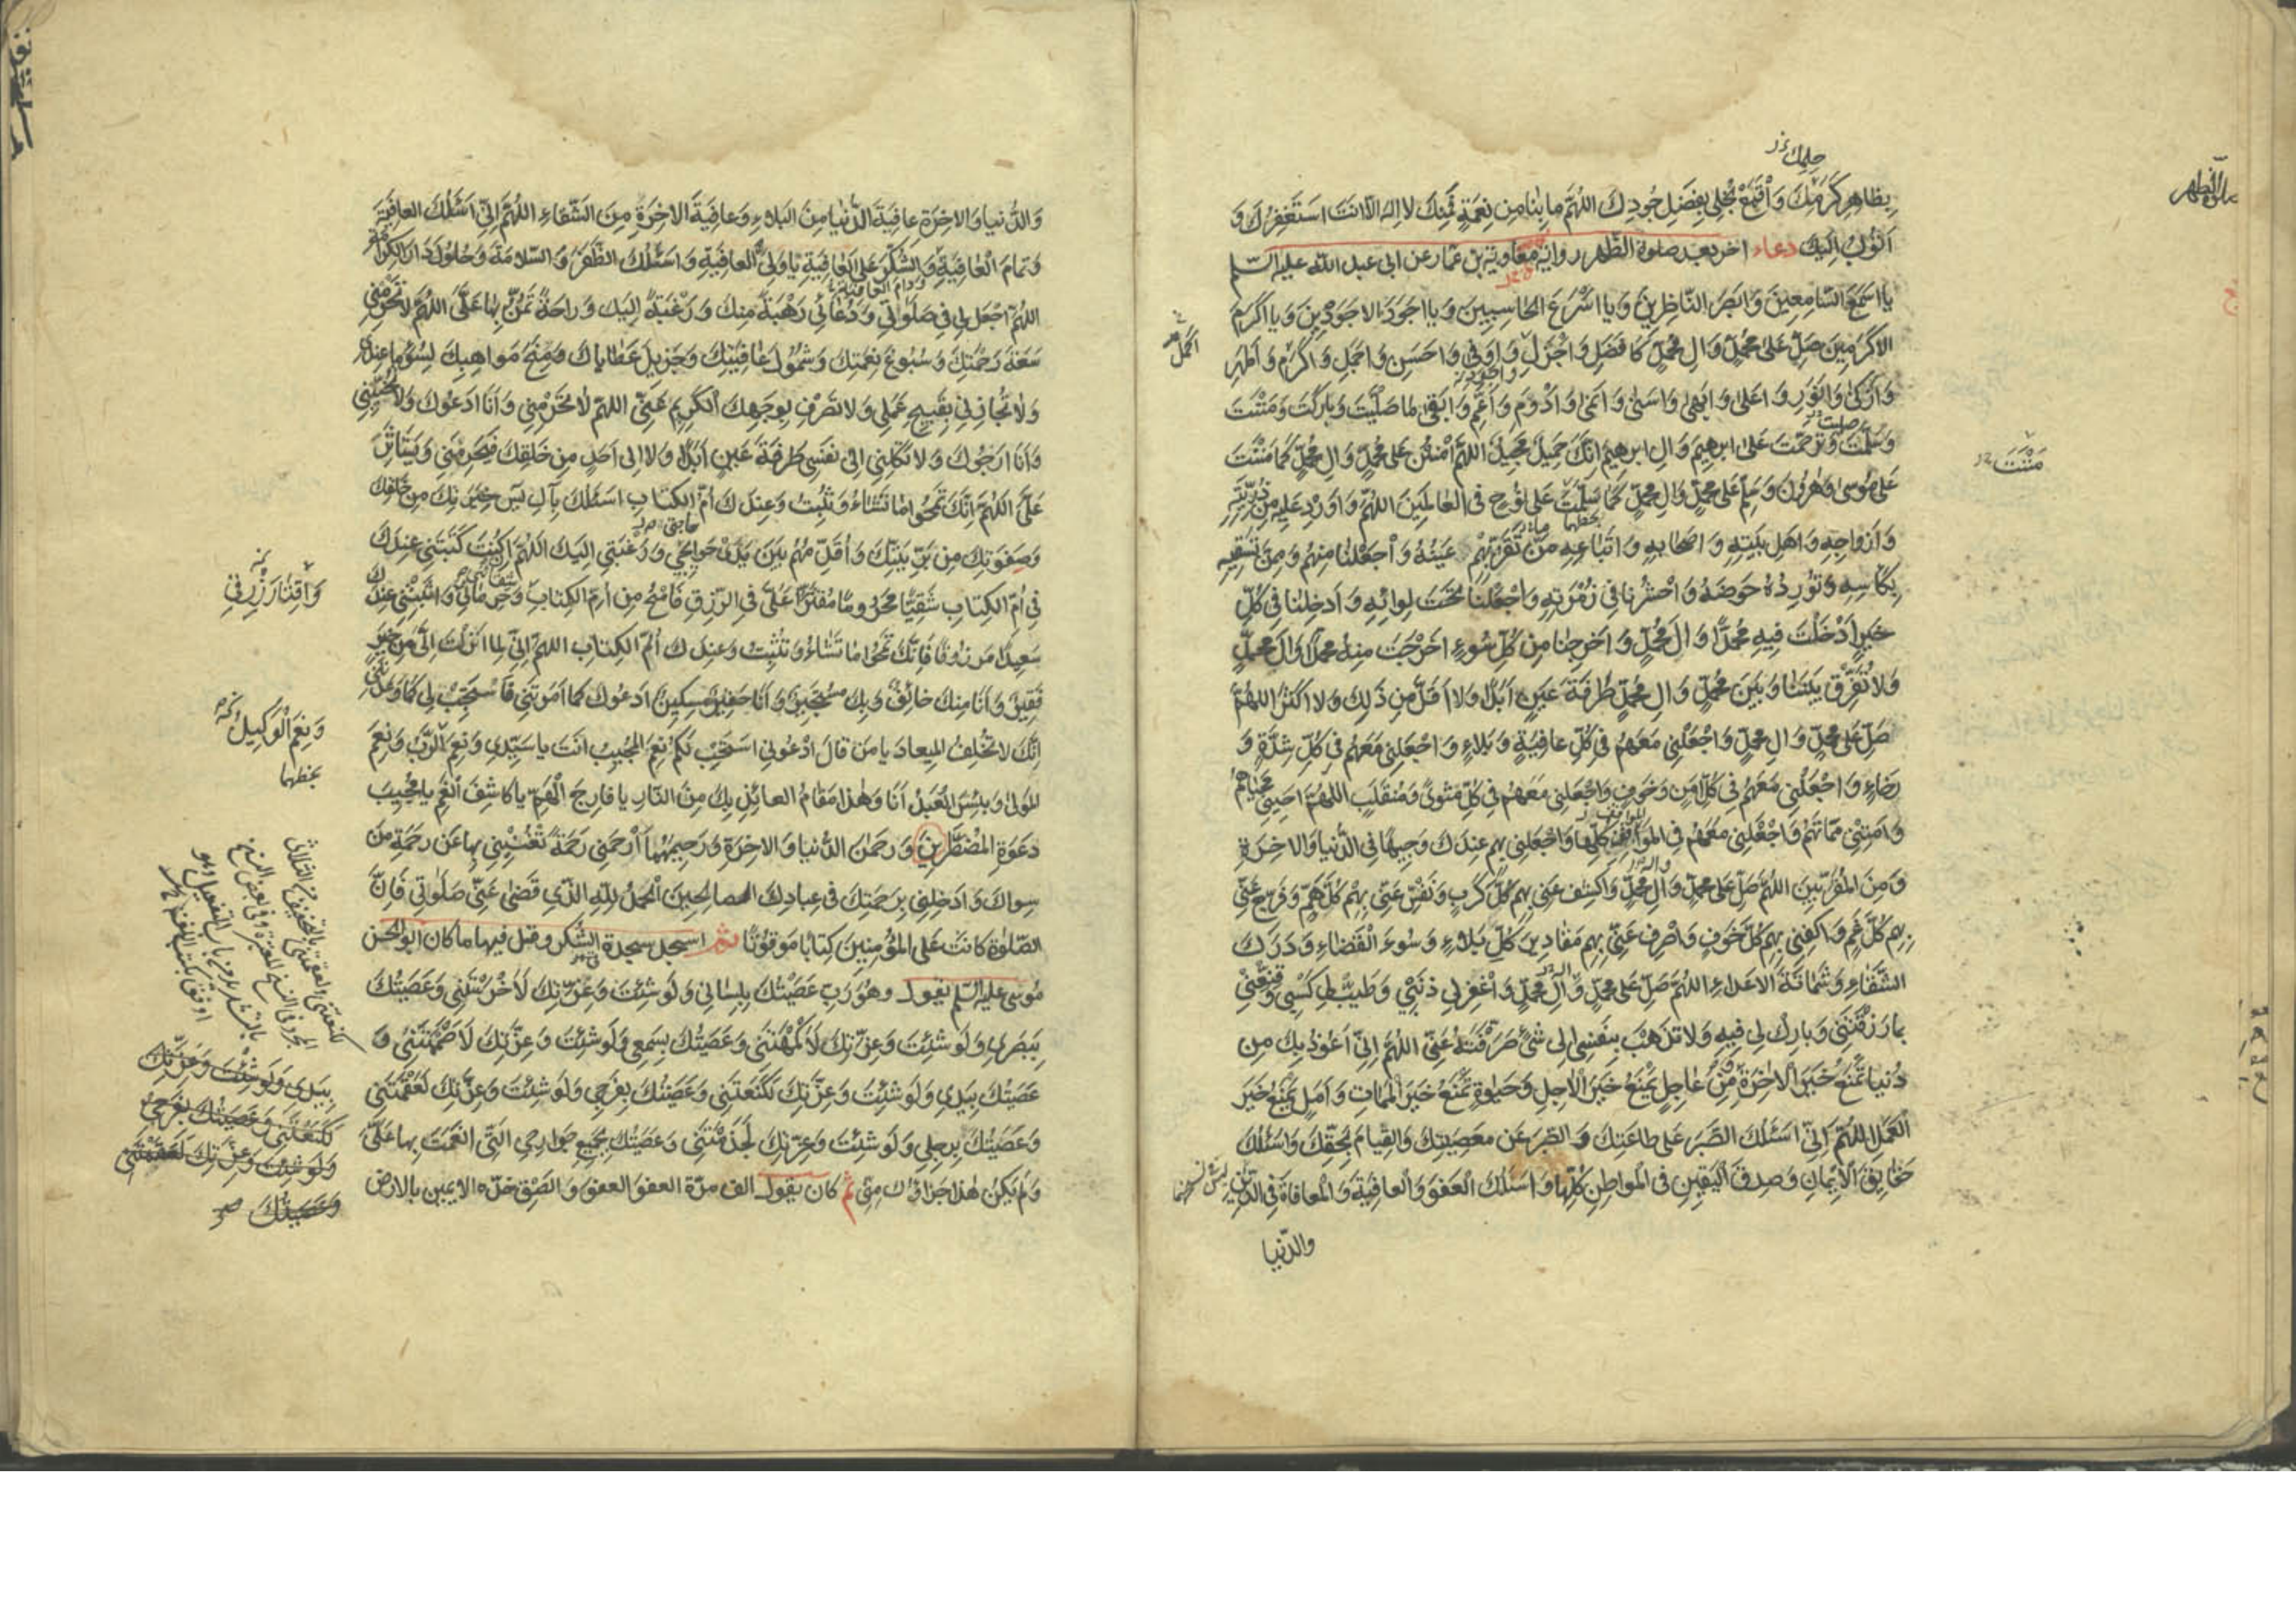 حلمك
بِظاهِرِ كَرَمِكَ وَاقْمَعْ بُخْلِي بِفَضْلِ جُودِكَ اللهُمَّ ما بِنا مِن نِعْمَةٍ فَمِنْكَ لا اله الّا انتَ استَغفِرُكَ وَ
اَتُوبُ اِلَيْكَ دعاء اخر بعد صلوة الظّهر رواية معاوية بن عمّار عن ابى عبد اللّه عليه السّلم
يا اَسمَعَ السّامِعِينَ وَيا اَبصَرَ النّاظِرِينَ وَيا اَسْرَعَ الحاسِبِينَ وَيا اَجوَدَ الاجوَدِينَ وَيا اَكرَمَ
الاكرَمِينَ صَلِّ عَلى مُحَمَّدٍ وَالِ مُحَمَّدٍ كَافضَلِ وَاَجْزَلِ وَاَوفى وَاحسَنِ وَاَجمَلِ وَاكرَمِ وَاَطهَرِ
وَاَزكى وَانوَرِ وَاَعلى وَابهى وَاَسنى وَاَنمى وَادْوَمِ وَاَعَمِّ وَابقى ما صَلَّيتَ وَبارَكتَ وَمَنَنْتَ
وَسَلَّمتَ وَتَرَحَّمتَ عَلى ابرهِيمَ وَالِ ابرهِيمَ اِنَّكَ حَمِيدٌ مَجِيدٌ اللهُمَّ امْنُن عَلى مُحَمَّدٍ وَالِ مُحَمَّدٍ كَما مَنَنْتَ
مَنَنْتَ
عَلى مُوسى وَهٰرُونَ وَسَلِّم عَلى مُحَمَّدٍ وَالِ مُحَمَّدٍ كَما سَلَّمتَ عَلى نُوحٍ فى العالَمِينَ اللهُمَّ وَاَورِد عَلَيهِ مِن ذُرِّيَّتِهِ
وَازواجِهِ وَاهلِ بَيتِهِ وَاصحابِهِ وَاَتباعِهِ مَن تَقَرُّ بِهِم عَينُهُ وَاجعَلنا مِنهُم وَمِمَّن تَسقِيهِ
بِكَاسِهِ وَتُورِدُهُ حَوضَهُ وَاحشُرنا فى زُمرَتِهِ وَاجعَلنا تَحتَ لِوائِهِ وَاَدخِلنا فى كُلِّ
خَيرٍ اَدخَلتَ فِيهِ مُحَمَّدًا وَالَ مُحَمَّدٍ وَاَخرِجنا مِن كُلِّ سُوءٍ اَخرَجتَ مِنهُ مُحَمَّدًا وَالَ مُحَمَّدٍ
وَلا تُفَرِّق بَينَنا وَبَينَ مُحَمَّدٍ وَالِ مُحَمَّدٍ طَرفَةَ عَينٍ اَبَدًا وَلا اَقَلَّ مِن ذَلِكَ وَلا اكثَرَ اللهُمَّ
صَلِّ عَلى مُحَمَّدٍ وَالِ مُحَمَّدٍ وَاجعَلنِى مَعَهُم فى كُلِّ عافِيَةٍ وَبَلاءٍ وَاجعَلنِى مَعَهُم فى كُلِّ شِدَّةٍ وَ
رَخاءٍ وَاجعَلنِى مَعَهُم فى كُلِّ اَمنٍ وَخَوفٍ وَاجعَلنِى مَعَهُم فى كُلِّ مَثوىً وَمُنقَلَبٍ اللهُمَّ اَحيِنِى مَحياهُم
وَاَمِتنِى مَماتَهُم وَاجعَلنِى مَعَهُم فى المَواقِفِ كُلِّها وَاجعَلنِى بِهِم عِندَكَ وَجِيهًا فى الدُّنيا وَالاخِرَةِ
وَمِنَ المُقَرَّبِينَ اللهُمَّ صَلِّ عَلى مُحَمَّدٍ وَالِ مُحَمَّدٍ وَاكشِف عَنِّى بِهِم كُلَّ كَربٍ وَنَفِّس عَنِّى بِهِم كُلَّ هَمٍّ وَفَرِّج عَنِّى
بِهِم كُلَّ غَمٍّ وَاكفِنِى بِهِم كُلَّ خَوفٍ وَاصرِف عَنِّى بِهِم مَقادِيرَ كُلِّ بَلاءٍ وَسُوءَ القَضاءِ وَدَرَكَ
الشَّقاءِ وَشَماتَةَ الاعداءِ اللهُمَّ صَلِّ عَلى مُحَمَّدٍ وَالِ مُحَمَّدٍ وَاغفِر لِى ذَنبِى وَطَيِّب لِى كَسبِى وَقَنِّعنِى
بِما رَزَقتَنِى وَبارِك لِى فِيهِ وَلا تَذهَب بِنَفسِى اِلى شَىءٍ صَرَفتَهُ عَنِّى اللهُمَّ اِنِّى اَعُوذُ بِكَ مِن
دُنيا تَمنَعُ خَيرَ الاخِرَةِ وَمِن عاجِلٍ يَمنَعُ خَيرَ الاجِلِ وَحَيٰوةٍ تَمنَعُ خَيرَ المَماتِ وَاَمَلٍ يَمنَعُ خَيرَ
العَمَلِ اللهُمَّ اِنِّى اَسئَلُكَ الصَّبرَ عَلى طاعَتِكَ وَالصَّبرَ عَن مَعصِيَتِكَ وَالقِيامَ بِحَقِّكَ وَاسئَلُكَ
حَقايِقَ الايمانِ وَصِدقَ اليَقِينِ فى المَواطِنِ كُلِّها وَاَسئَلُكَ العَفوَ وَالعافِيَةَ وَالمُعافاةَ فى الدُّنيا
والدّنيا
وَالدُّنيا وَالاخِرَةِ عافِيَةَ الدُّنيا مِنَ البَلاءِ وَعافِيَةَ الاخِرَةِ مِنَ الشَّقاءِ اللهُمَّ اِنِّى اَسئَلُكَ العافِيَةَ
وَتَمامَ العافِيَةِ وَالشُّكرَ عَلى العافِيَةِ يا وَلِىَّ العافِيَةِ وَاَسئَلُكَ الظَّفَرَ وَالسَّلامَةَ وَحُلُولَ دارِ الكَرامَةِ
ودوام العافية
اللهُمَّ اجعَل لِى فى صَلَوتِى وَدُعائِى رَهبَةً مِنكَ وَرَغبَةً اِلَيكَ وَراحَةً تَمُنُّ بِها عَلَىَّ اللهُمَّ لا تَحرِمنِى
سَعَةَ رَحمَتِكَ وَسُبُوغَ نِعمَتِكَ وَشُمُولَ عافِيَتِكَ وَجَزِيلَ عَطاياكَ وَمِنَحَ مَواهِبِكَ لِسُوءِ ما عِندِى
وَلا تُجازِنِى بِقَبِيحِ عَمَلِى وَلا تَصرِف بِوَجهِكَ الكَرِيمِ عَنِّى اللهُمَّ لا تَحرِمنِى وَاَنَا اَدعُوكَ وَلا تُخَيِّبنِى
وَاَنَا اَرجُوكَ وَلا تَكِلنِى اِلى نَفسِى طَرفَةَ عَينٍ اَبَدًا وَلا اِلى اَحَدٍ مِن خَلقِكَ فَيَحرِمَنِى وَيَستَاثِرَ
عَلَىَّ اللهُمَّ اِنَّكَ تَمحُوا ما تَشاءُ وَتُثبِتُ وَعِندَكَ اُمُّ الكِتابِ اَسئَلُكَ بِآلِ يس خِيَرَتِكَ مِن خَلقِكَ
وَصَفوَتِكَ مِن بَرِيَّتِكَ وَاُقَدِّمُهُم بَينَ يَدَى حَوايِجِى وَرَغبَتِى اِلَيكَ اللهُمَّ اِن كُنتَ كَتَبتَنِى عِندَكَ
فى اُمِّ الكِتابِ شَقِيًّا مَحرُومًا مُقتَّرًا عَلَىَّ فى الرِّزقِ فَامحُ مِن اُمِّ الكِتابِ شَقائِى وَحِرمانِى وَاثبِتنِى عِندَكَ
وَاِقتارَ رِزقِى
سَعِيدًا مَرزُوقًا فَاِنَّكَ تَمحُوا ما تَشاءُ وَتُثبِتُ وَعِندَكَ اُمُّ الكِتابِ اللهُمَّ اِنِّى لِما اَنزَلتَ اِلَىَّ مِن خَيرٍ
فَقِيرٌ وَاَنَا مِنكَ خائِفٌ وَبِكَ مُستَجِيرٌ وَاَنَا حَقِيرٌ مِسكِينٌ اَدعُوكَ كَما اَمَرتَنِى فَاستَجِب لِى كَما وَعَدتَنِى
اِنَّكَ لا تُخلِفُ المِيعادَ يا مَن قالَ ادعُونِى اَستَجِب لَكُم نِعمَ المُجِيبُ اَنتَ يا سَيِّدِى وَنِعمَ الرَّبُّ وَنِعمَ
وَنِعمَ الوَكيلُ
بخطهما
المَولى وَبِئسَ العَبدُ اَنَا وَهٰذا مَقامُ العائِذِ بِكَ مِنَ النّارِ يا فارِجَ الهَمِّ يا كاشِفَ الغَمِّ يا مُجِيبَ
دَعوَةِ المُضطَرِّينَ وَرَحمٰنَ الدُّنيا وَالاخِرَةِ وَرَحِيمَهُما اَرحَمنِى رَحمَةً تُغنِينِى بِها عَن رَحمَةِ مَن
سِواكَ وَاَدخِلنِى بِرَحمَتِكَ فى عِبادِكَ الصالِحِينَ الحَمدُ لِلّهِ الَّذِى قَضى عَنِّى صَلَوتِى فَاِنَّ
الصَّلوٰةَ كانَت عَلى المُؤمِنِينَ كِتابًا مَوقُوتًا ثم اسجد سجدة الشكر وقل فيها ما كان ابو الحسن
موسى عليه السّلم يقول وهو رَبِّ عَصَيتُكَ بِلِسانِى وَلَو شِئتَ وَعِزَّتِكَ لَاَخرَستَنِى وَعَصَيتُكَ
بِبَصَرِى وَلَو شِئتَ وَعِزَّتِكَ لَاَكمَهتَنِى وَعَصَيتُكَ بِسَمعِى وَلَو شِئتَ وَعِزَّتِكَ لَاَصمَمتَنِى وَ
عَصَيتُكَ بِيَدِى وَلَو شِئتَ وَعِزَّتِكَ لَكَنَّعتَنِى وَعَصَيتُكَ بِفَرجِى وَلَو شِئتَ وَعِزَّتِكَ لَعَقَمتَنِى
وَعَصَيتُكَ بِرِجلِى وَلَو شِئتَ وَعِزَّتِكَ لَجَذَمتَنِى وَعَصَيتُكَ بِجَمِيعِ جَوارِحِى الَّتِى اَنعَمتَ بِها عَلَىَّ
وَلَم يَكُن هٰذا جَزاؤُكَ مِنِّى ثم كان يقول الف مرّة العفو العفو والصق خدّه الايمن بالارض
بِيَدِى وَلَو شِئتَ وَعِزَّتِكَ
لَكَنَّعتَنِى وَعَصَيتُكَ بِفَرجِى
وَلَو شِئتَ وَعِزَّتِكَ لَعَقَمتَنِى
وَعَصَيتُكَ